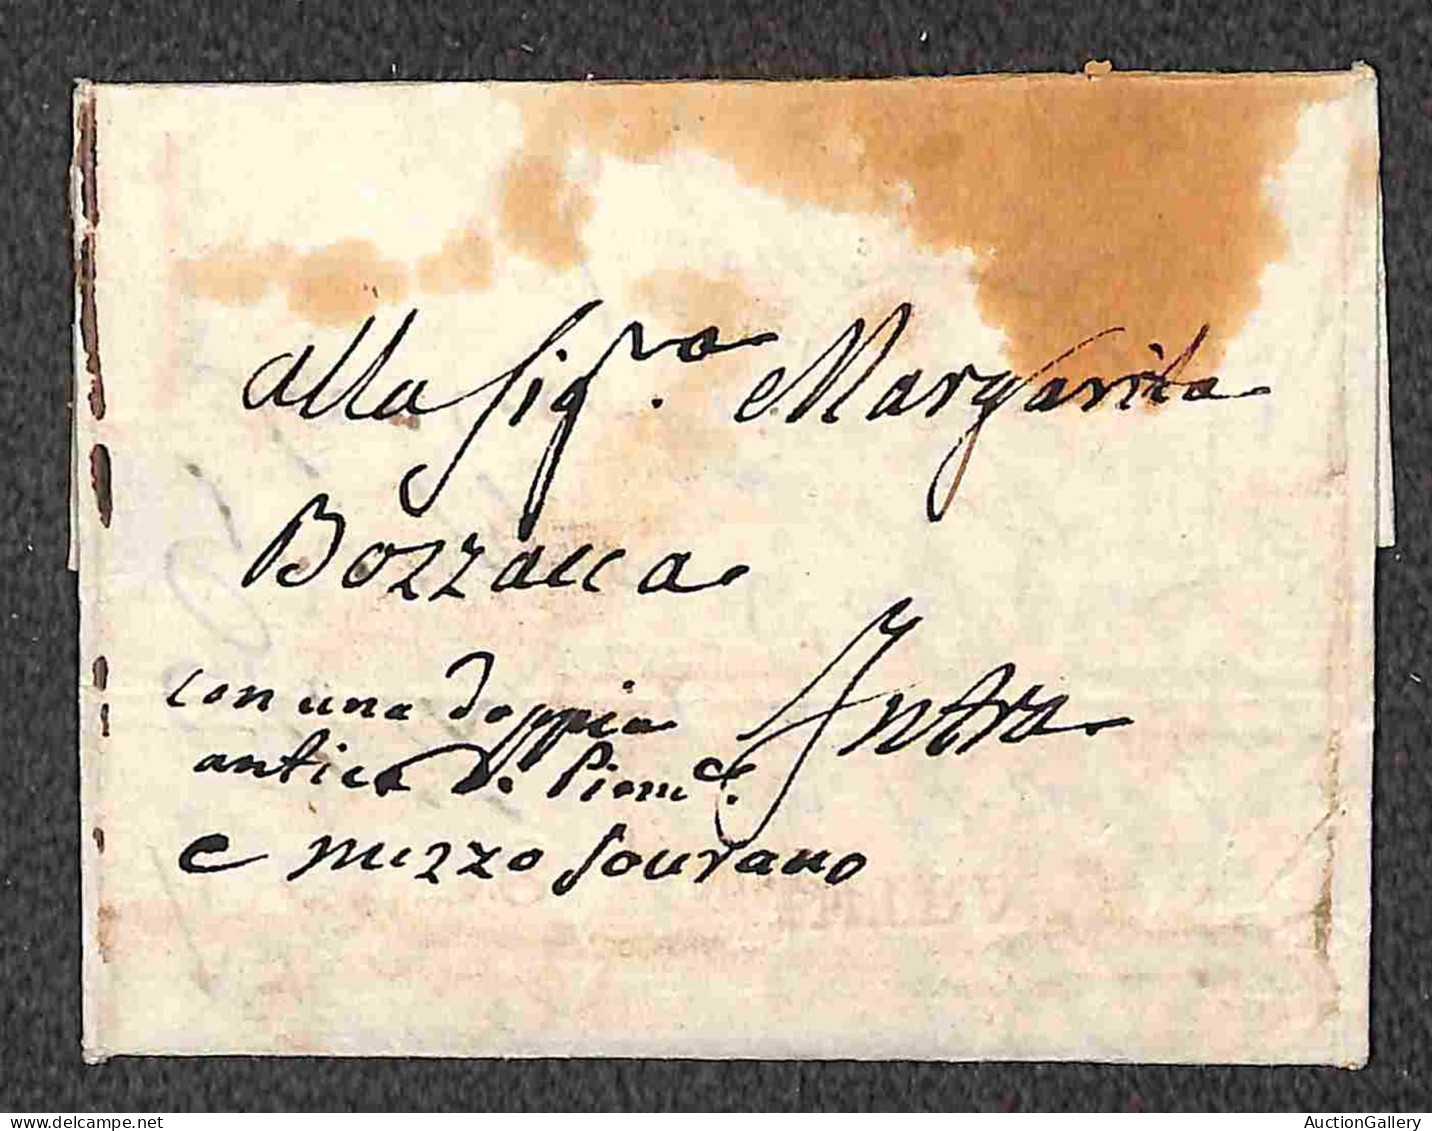 alla sig.ra Margarita
Bozzacca
Intra
con una doppia
antica di Piem.e
e mezzo sourano
AuctionGallery